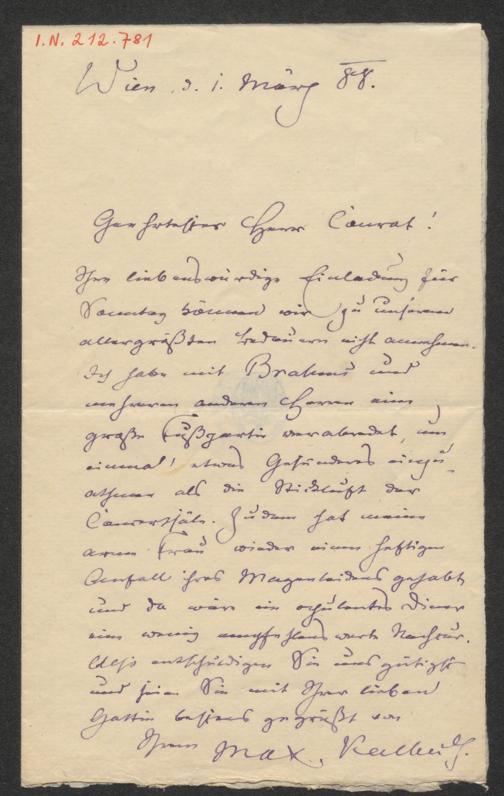 I.N. 212.781
Wien, d. 1. März 88.
Geehrtester Herr Conrat!
Ihre liebenswürdige Einladung für
Sonntag können wir zu unserem
allergrößten Bedauern nicht annehmen.
Ich habe mit Brahms und
mehreren anderen Herren eine
große Fußpartie verabredet, um
einmal etwas Gesünderes einzu-
athmen als die Stickluft der
Concertsäle. Zudem hat meine
arme Frau wieder einen heftigen
Anfall ihres Magenleidens gehabt
und da wäre ein opulentes Diner
eine wenig empfehlenswerte Nachkur.
Also entschuldigen Sie uns gütigst
und seien Sie mit Ihrer lieben
Gattin bestens gegrüßt von
Ihrem Max Kalbeck.